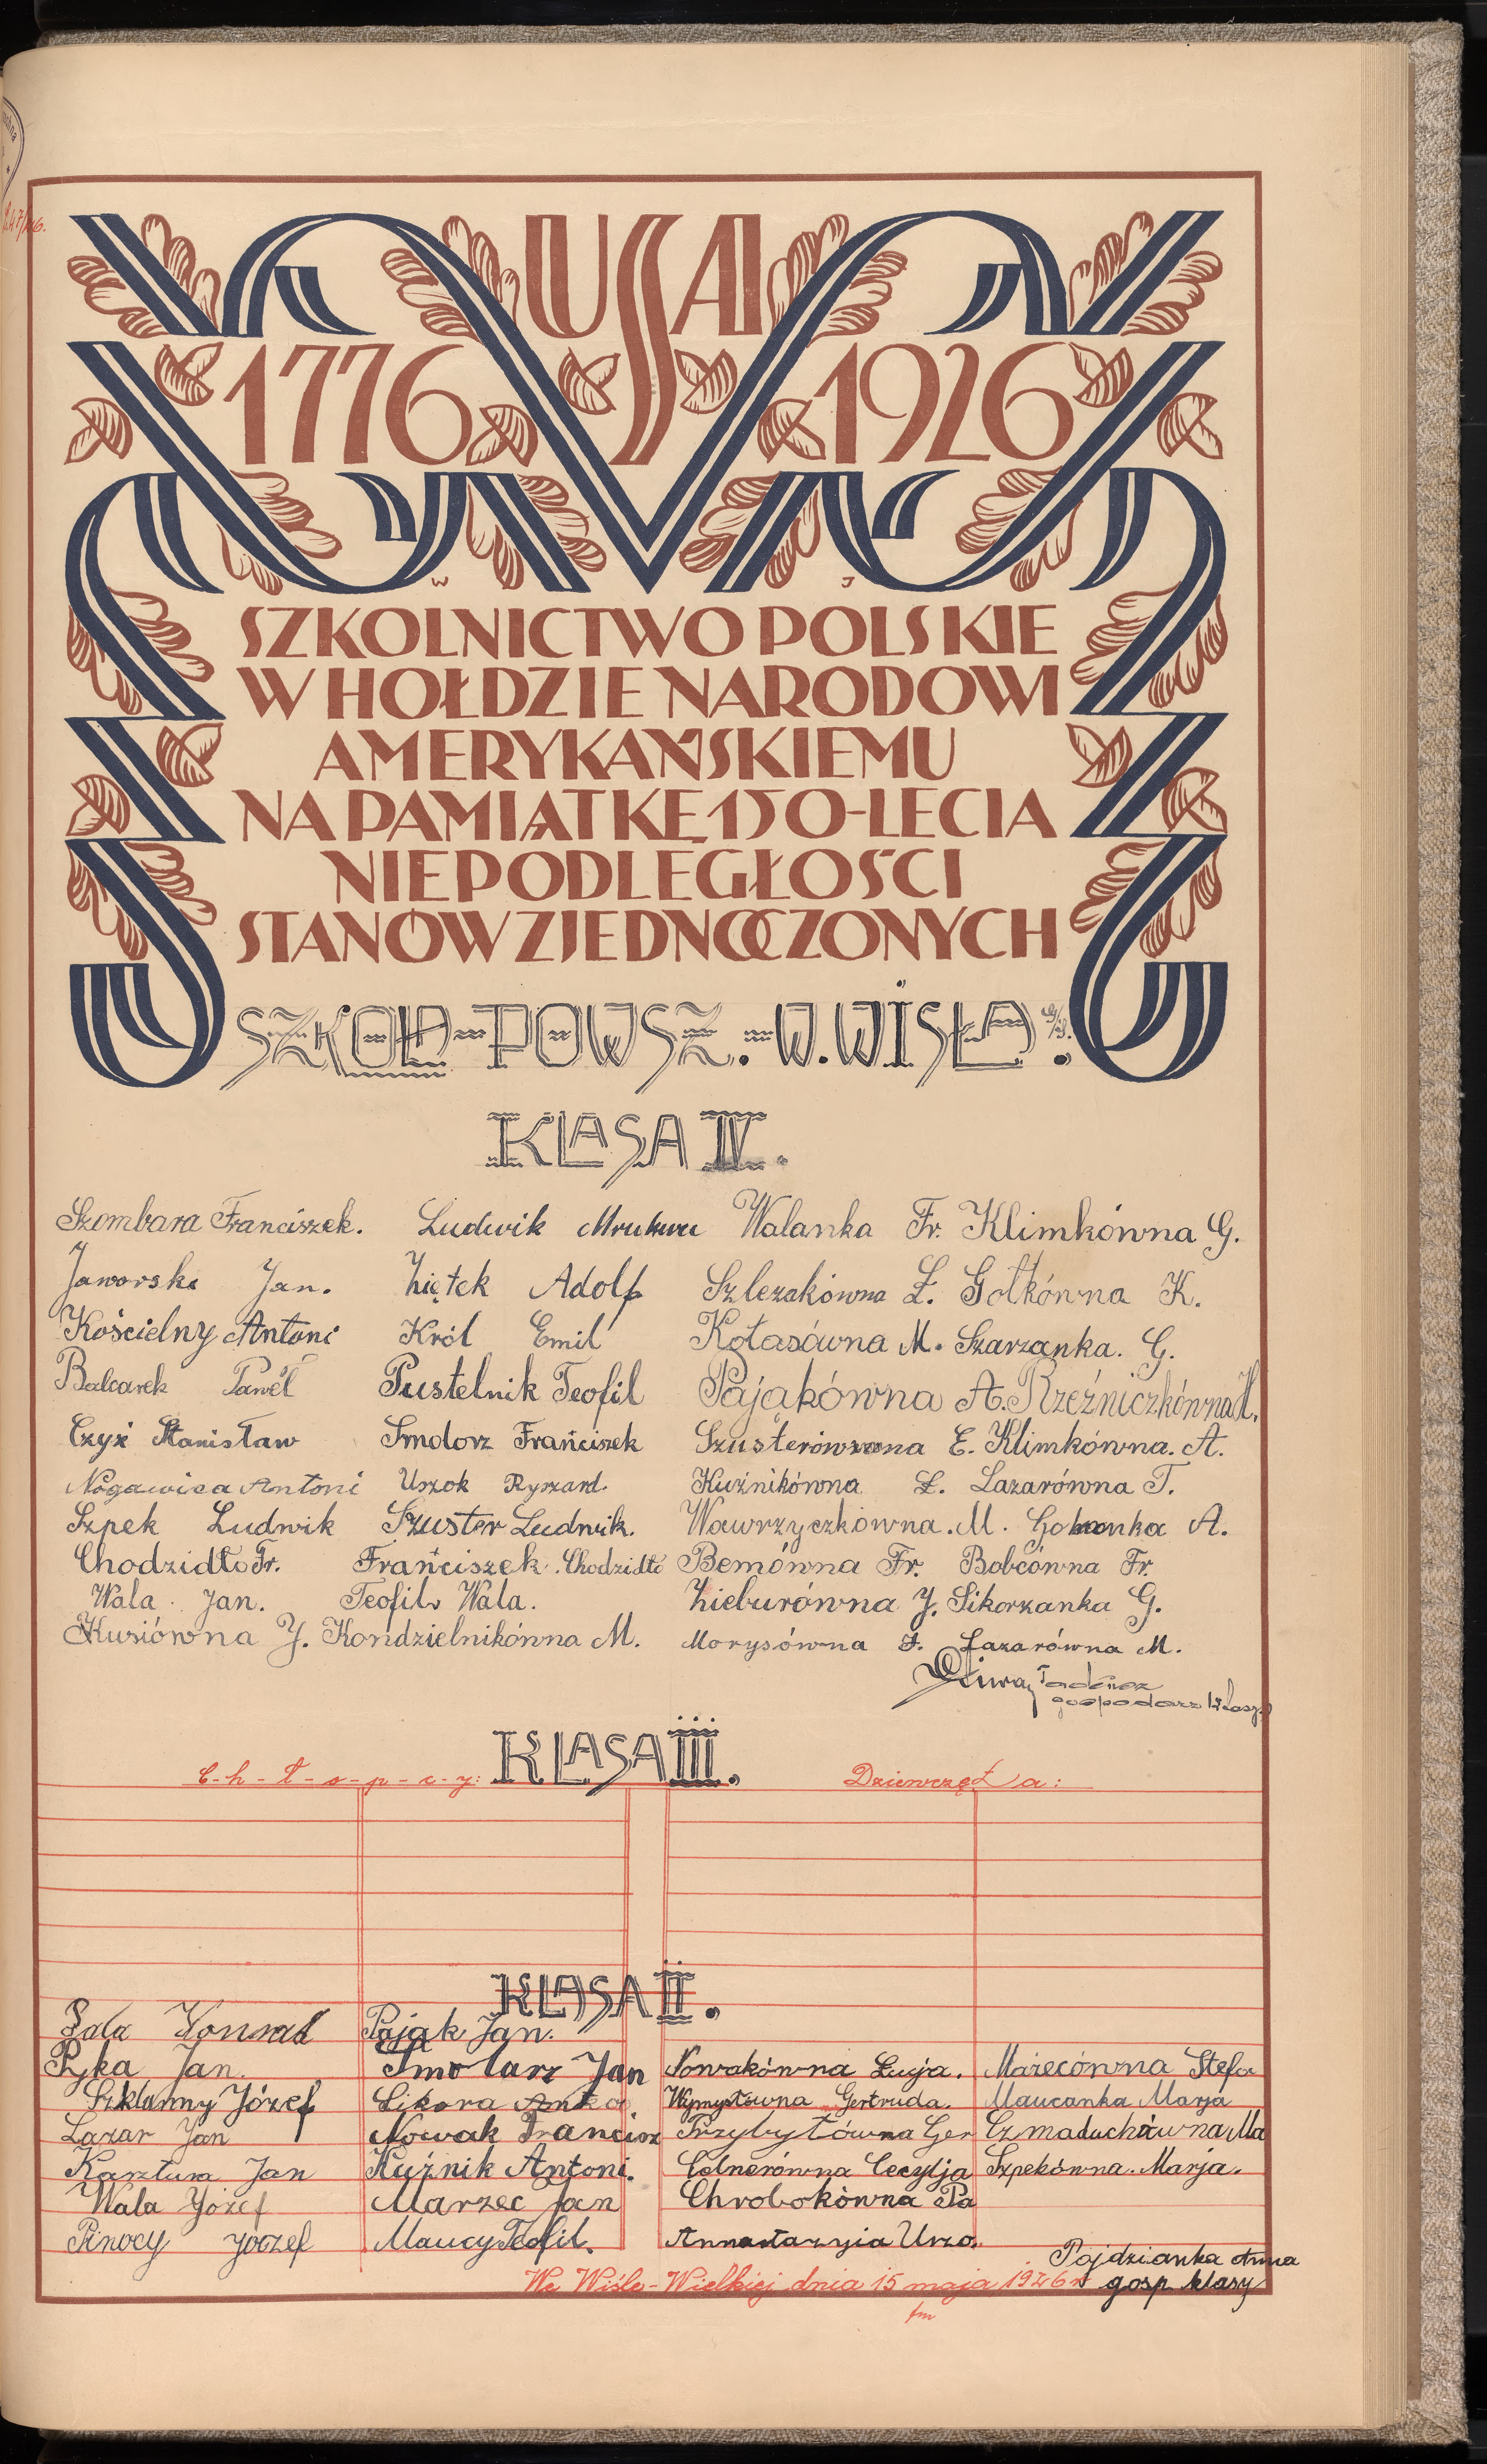 USA
1776 1926
W J
SZKOLNICTWO POLSKIE
W HOŁDZIE NARODOWI
AMERYKAŃSKIEMU
NA PAMIĄTKĘ 150-LECIA
NIEPODLEGŁOŚCI
STANÓW ZJEDNOCZONYCH
SZKOŁA-POWSZ.-W.WISŁA
KLASA IV.
Szombara Franciszek. Ludwik Mrukwa Walanka Fr. Klimkówna G.
Jaworski Jan. Ziętek Adolf Szlezakówna Ł. Gotkówna K.
Kościelny Antoni Król Emil Kołasówna M. Szarzanka. G.
Balcarek Paweł Pustelnik Teofil Pająkówna A. Rzeźniczkówna M.
Czyż Stanisław Smolorz Frańciszek Szusterówna E. Klimkówna. A.
Nogawica Antoni Uszok Ryszard. Kuźnikówna Ł. Lazarówna T.
Szpek Ludwik Szuster Ludwik. Wawrzyczkówna. M. A.
Chodzidło Fr. Frańciszek. Chodzidło Bemówna Fr. Bobcówna Fr.
Wala. Jan. Teofil Wala. Zieburówna J. Sikorzanka G.
Kusiówna J. Kondzielnikówna M. Morysówna F. Lazarówna M.
Tadeusz
gospodarz klasy
KLASA III.
C-h-ł-o-p-c-y: Dziewczęta:
KLASA II.
Sala Konrad Pająk Jan.
Ryka Jan. Smolarz Jan Nowakówna Łucja. Marecówna Stefa
Szklanny Józef Sikora Wymysłówna Gertruda. Maucanka Marja
Lazar Jan Nowak Francisz Przybyłówna Ger Czmaduchówna Ma
Kasztura Jan Kuźnik Antoni. Celnerówna Cecylja Szpekówna. Marja.
Wala Józef Marzec Jan Chrobokówna Pa
Pinocy Józef Maucy Teofil. Annastazyia Urzo.
Pojdzianka Anna
We Wiśle-Wielkiej dnia 15 maja 1926 r gosp. klasy